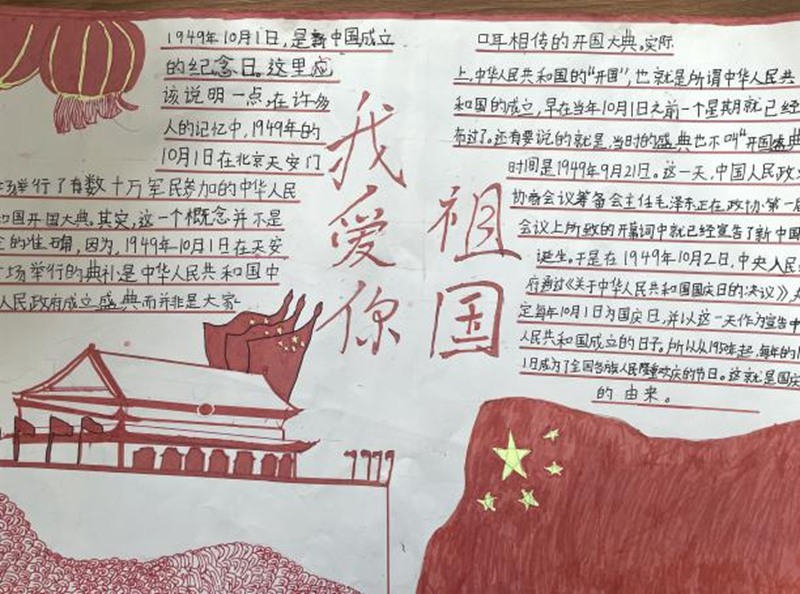 1949年10月1日,是新中国成立
的纪念日。这里应
该说明一点,在许多
人的记忆中,1949年的
10月1日在北京天安门
场举行了有数十万军民参加的中华人民
和国开国大典。其实,这一个概念并不是
的准确,因为,1949年10月1日在天安
场举行的典礼是中华人民共和国中
人民政府成立盛典而并非是大家
我爱你
祖国
口耳相传的开国大典。实际
上,中华人民共和国的“开国”,也就是所谓中华人民共
和国的成立,早在当年10月1日之前一个星期就已经
布过了。还有要说的就是,当时的盛典也不叫“开国盛典
时间是1949年9月21日。这一天,中国人民政
协商会议筹备会主任毛泽东正在政协第一
会议上所致的开幕词中就已经宣告了新中国
诞生。于是在1949年10月2日,中央人民
府通过《关于中华人民共和国国庆日的决议》
定每年10月1日为国庆日,并以这一天作为宣告中
人民共和国成立的日子。所以从1950年起,每年的1
1日成为了全国各族人民隆重欢庆的节日。这就是国庆
的由来。